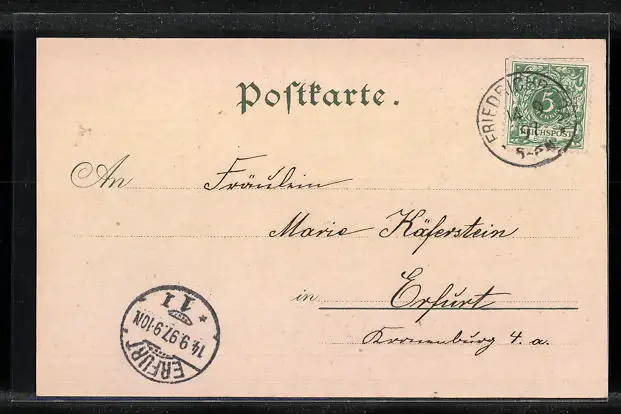 Postkarte.
5
REICHSPOST
5-6N
An Fräulein
Marie Käferstein
in Erfurt
Kronenburg 4. a.
ERFURT
14.9.97.9-10N
* 11